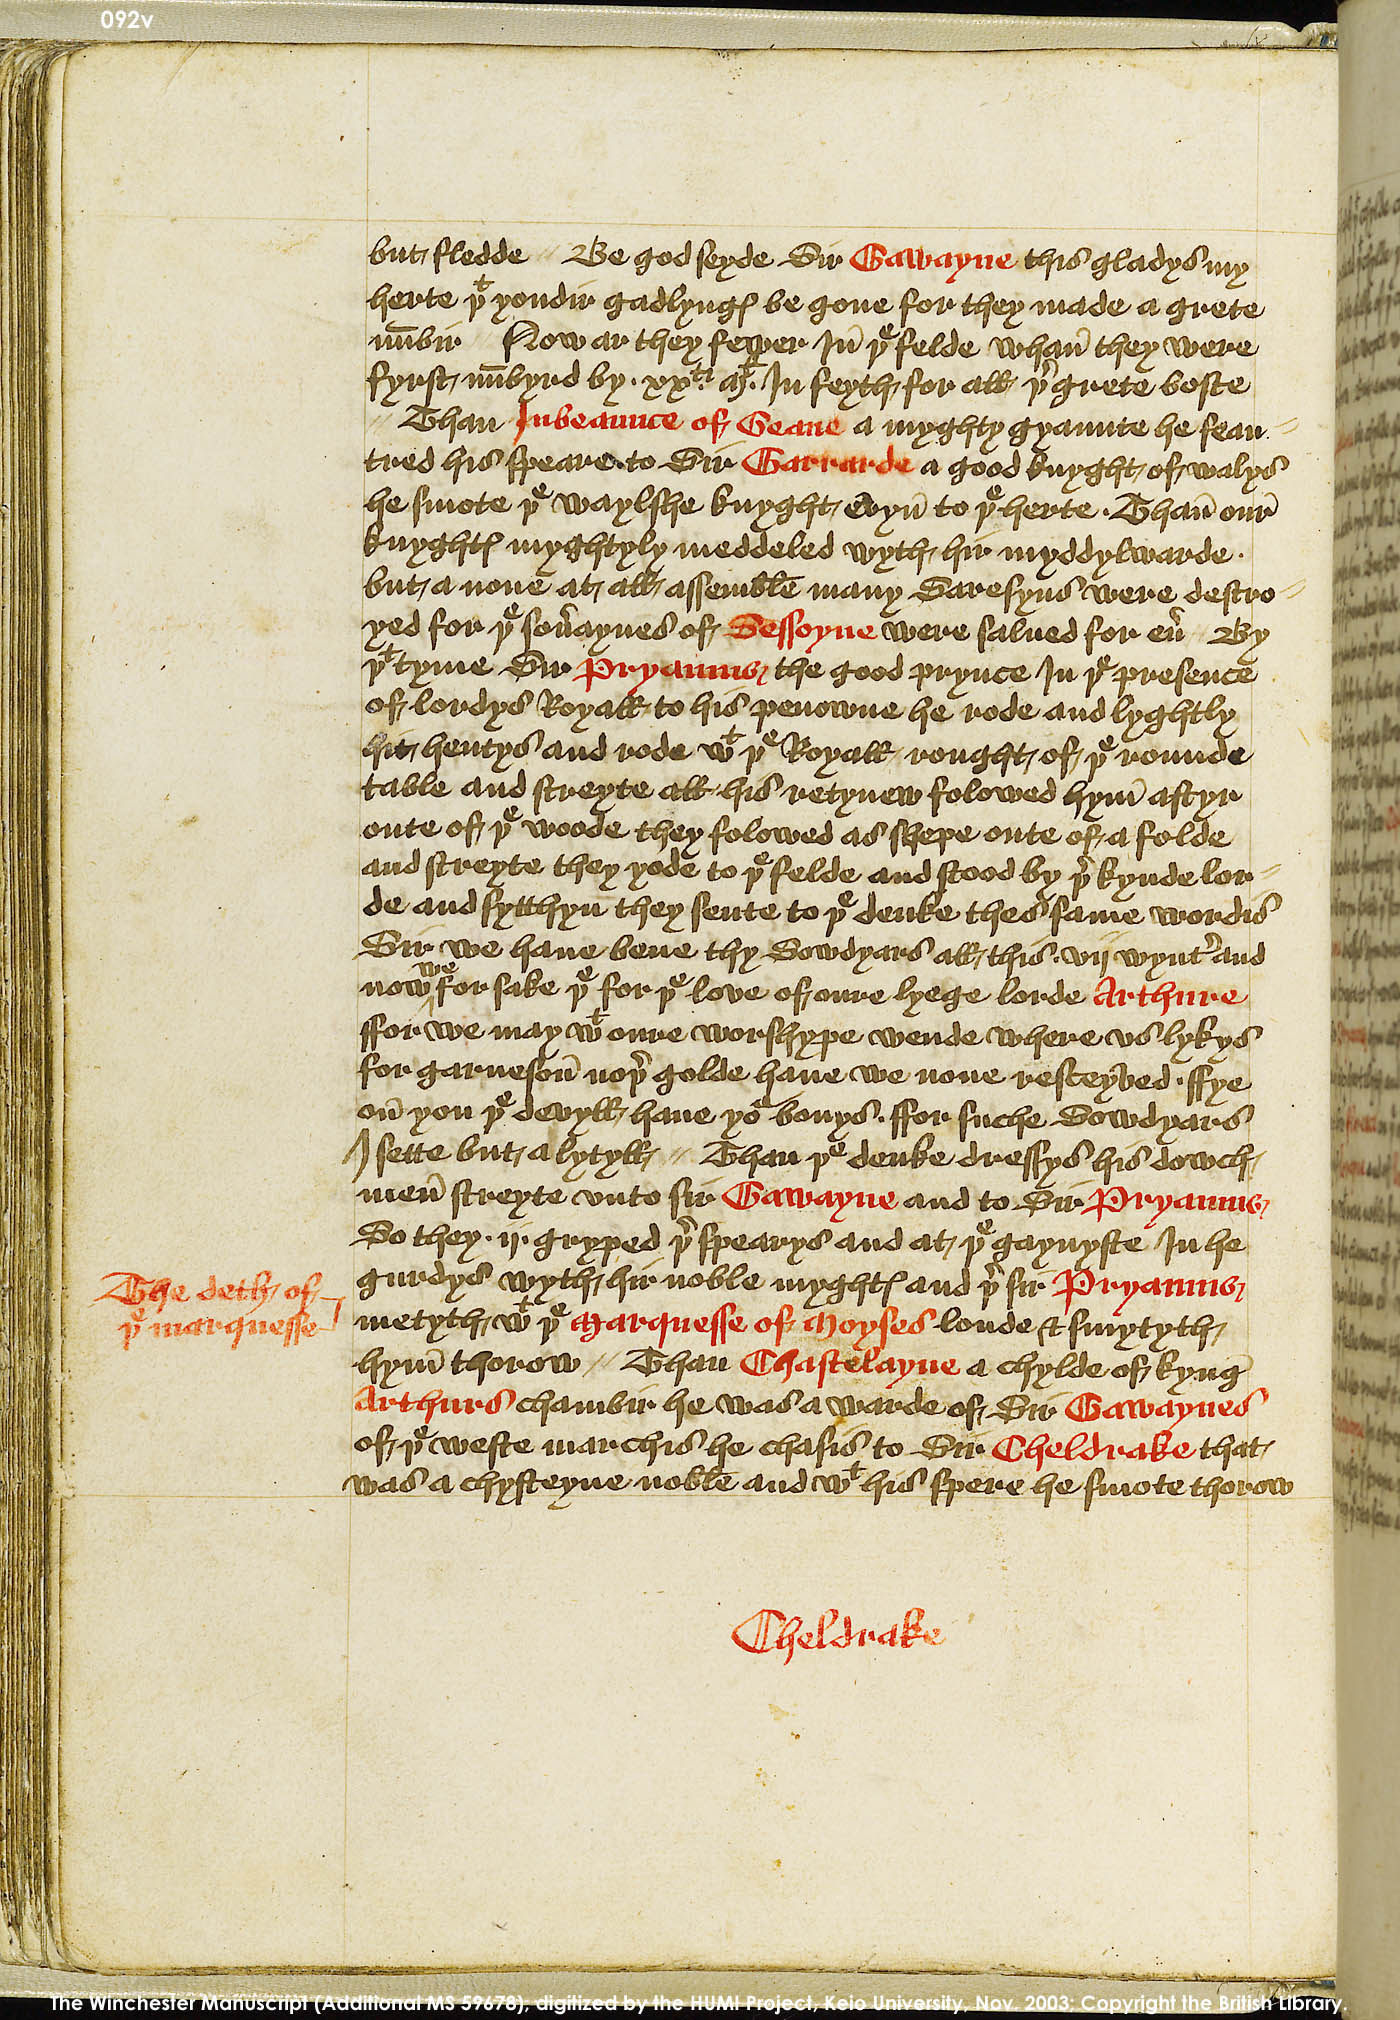 092v
but fledde // Be god seyde Sir Gawayne this gladys my
herte þᵗ yondir gadlyngꝭ be gone for they made a grete
nūbir // Now ar they fewer In̄ þᵉ felde whan̄ they were
fyrst nūbyrd by · xxᵗⁱ · Mˡ · In feyth for all þʳ grete boste
// Than Inbeaunce of Geane a myghty gyaunte he feau-
tred his speare to Sir Garrarde a good knyght of walys
he smote þᵉ waylshe knyght evyn̄ to þᵉ herte · Than̄ our̄
knyghtꝭ myghtyly meddeled wyth hir myddylwarde ·
but a none at all assemble many Saresyns were destro-
yed for þᵉ sou̓aynes of Sessoyne were salued for eu̓ // By
þᵗ tyme Sir Pryamus the good prynce In þᵉ presence
of lordys Royall to his penowne he rode and lyghtly
hit hentys and rode wᵗ þᵉ Royall rought of þᵉ rounde
table and streyte all his retynew folowed hym̄ aftyr
oute of þᵉ woode they folowed as shepe oute of a folde
and streyte they yode to þᵉ felde and stood by þʳ kynde lor-
de and sytthyn̄ they sente to þᵉ deuke thes same wordis
Sir we haue bene thy Sowdyars all this · vij wynt̓ and
now we for sake þᵉ for þᵉ love of oure lyege lorde Arthure
ffor we may wᵗ oure worshype wende where vs lykys
for garneson̄ noþʳ golde haue we none resceyved · ffye
on̄ you þᵉ devyll haue yoʳ bonys · ffor suche Sowdyars
I sette but a lytyll // Than þᵉ deuke dressys his dowch
men̄ streyte vnto sir Gawayne and to Sir Pryamus
So they · ij · gryped þʳ spearys and at þᵉ gaynyste In he
gurdys wyth hir noble myghtꝭ and þʳ sir Pryamus
metyth wᵗ þᵉ Marquesse of Moyses londe & smytyth
hym̄ thorow // Than Chastelayne a chylde of kyng
Arthurs chambir he was a warde of Sir Gawaynes
of þᵉ weste marchis he chasis to Sir Cheldrake that
was a chyfteyne noble and wᵗ his spere he smote thorow
The deth of
þᵉ marquesse
Cheldrake
The Winchester Manuscript (Additional MS 59678), digitized by the HUMI Project, Keio University, Nov. 2003; Copyright the British Library.